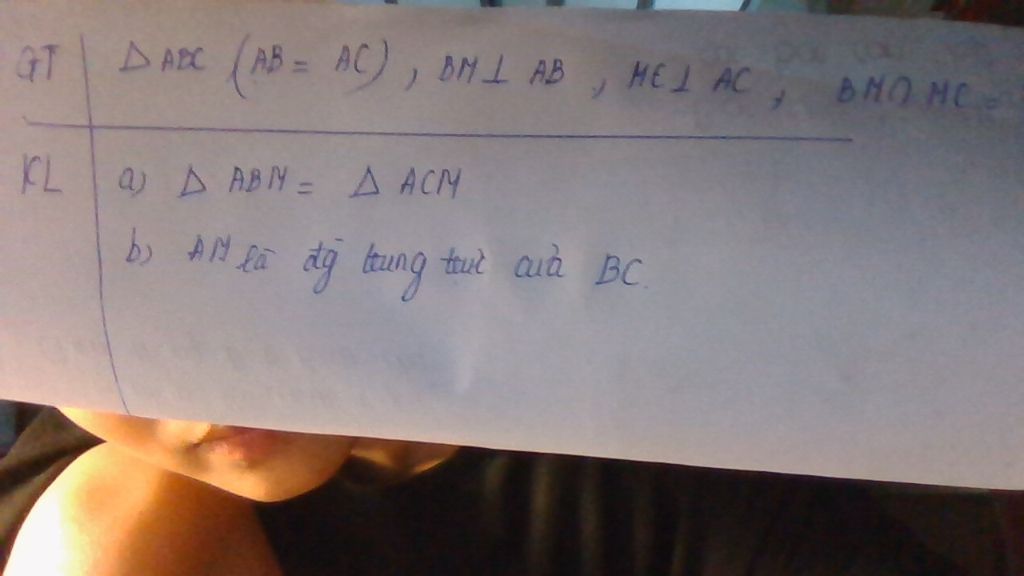 GT ΔABC (AB = AC), BM⊥ AB, MC⊥ AC, BM∩ MC =
KL a) Δ ABM = Δ ACM
b) AM là đg̀ trung trực của BC.